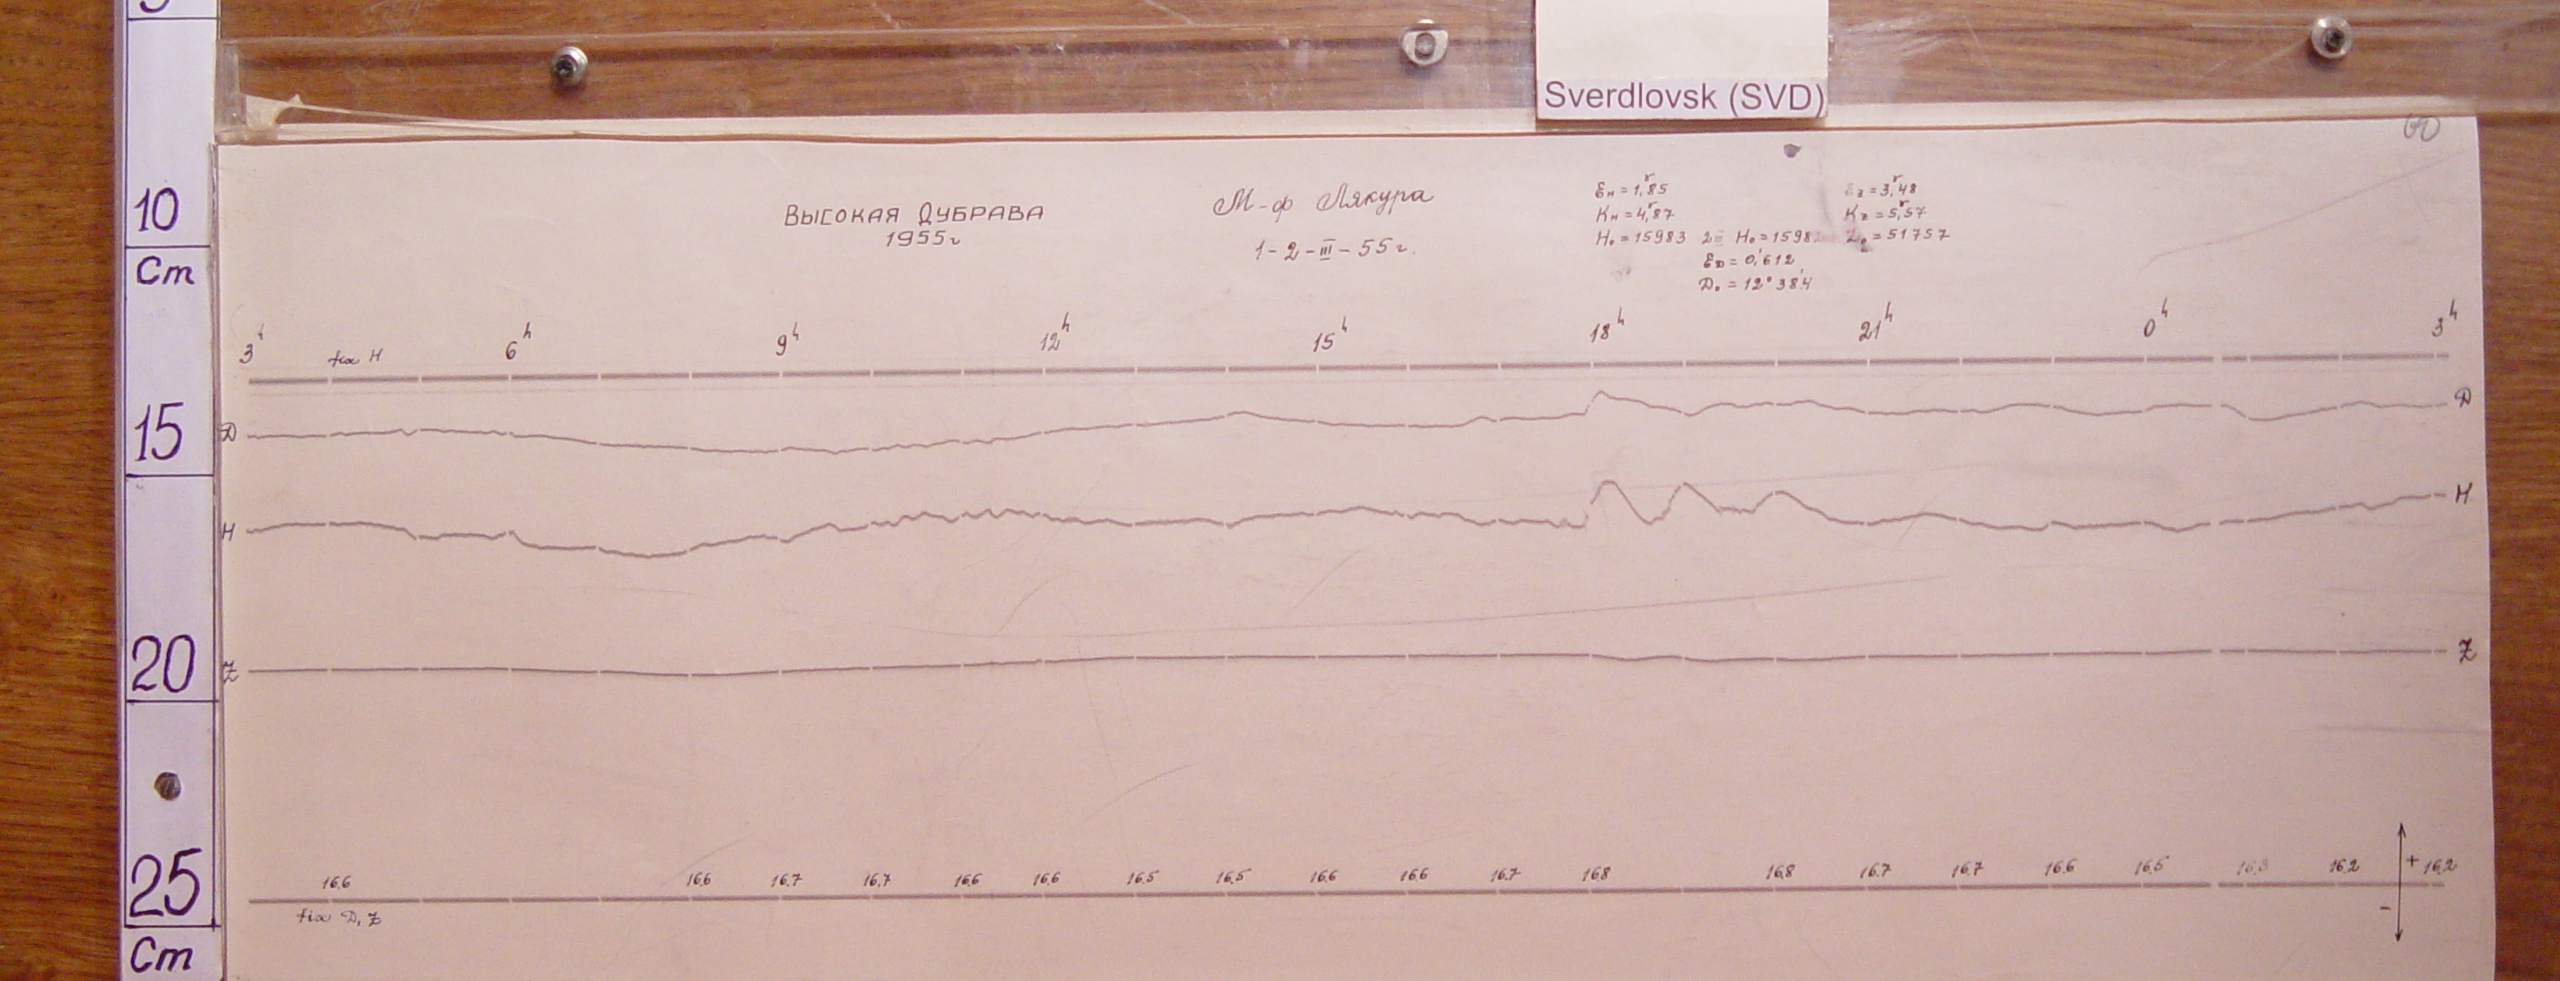 Sverdlovsk (SVD)
60
10
Cm
15
20
25
Cm
ВЫСОКАЯ ДУБРАВА
1955г
М-ф Лякура
1-2-III-55г.
Ɛн = 1,ᵞ85
Kн = 4,ᵞ87
H₀ = 15983 2= H₀ = 1598
Ɛz = 3,ᵞ48
Kz = 5,ᵞ57
Z₀ = 51757
ƐD = 0,'612
D₀ = 12° 38,'4
3ʰ 6ʰ 9ʰ 12ʰ 15ʰ 18ʰ 21ʰ 0ʰ 3ʰ
fix H
D D
H H
Z Z
16.6 16.6 16.7 16.7 16.6 16.6 16.5 16.5 16.6 16.6 16.7 16.8 16.8 16.7 16.7 16.6 16.5 16.3 16.2 + 16.2
fix D, Z -